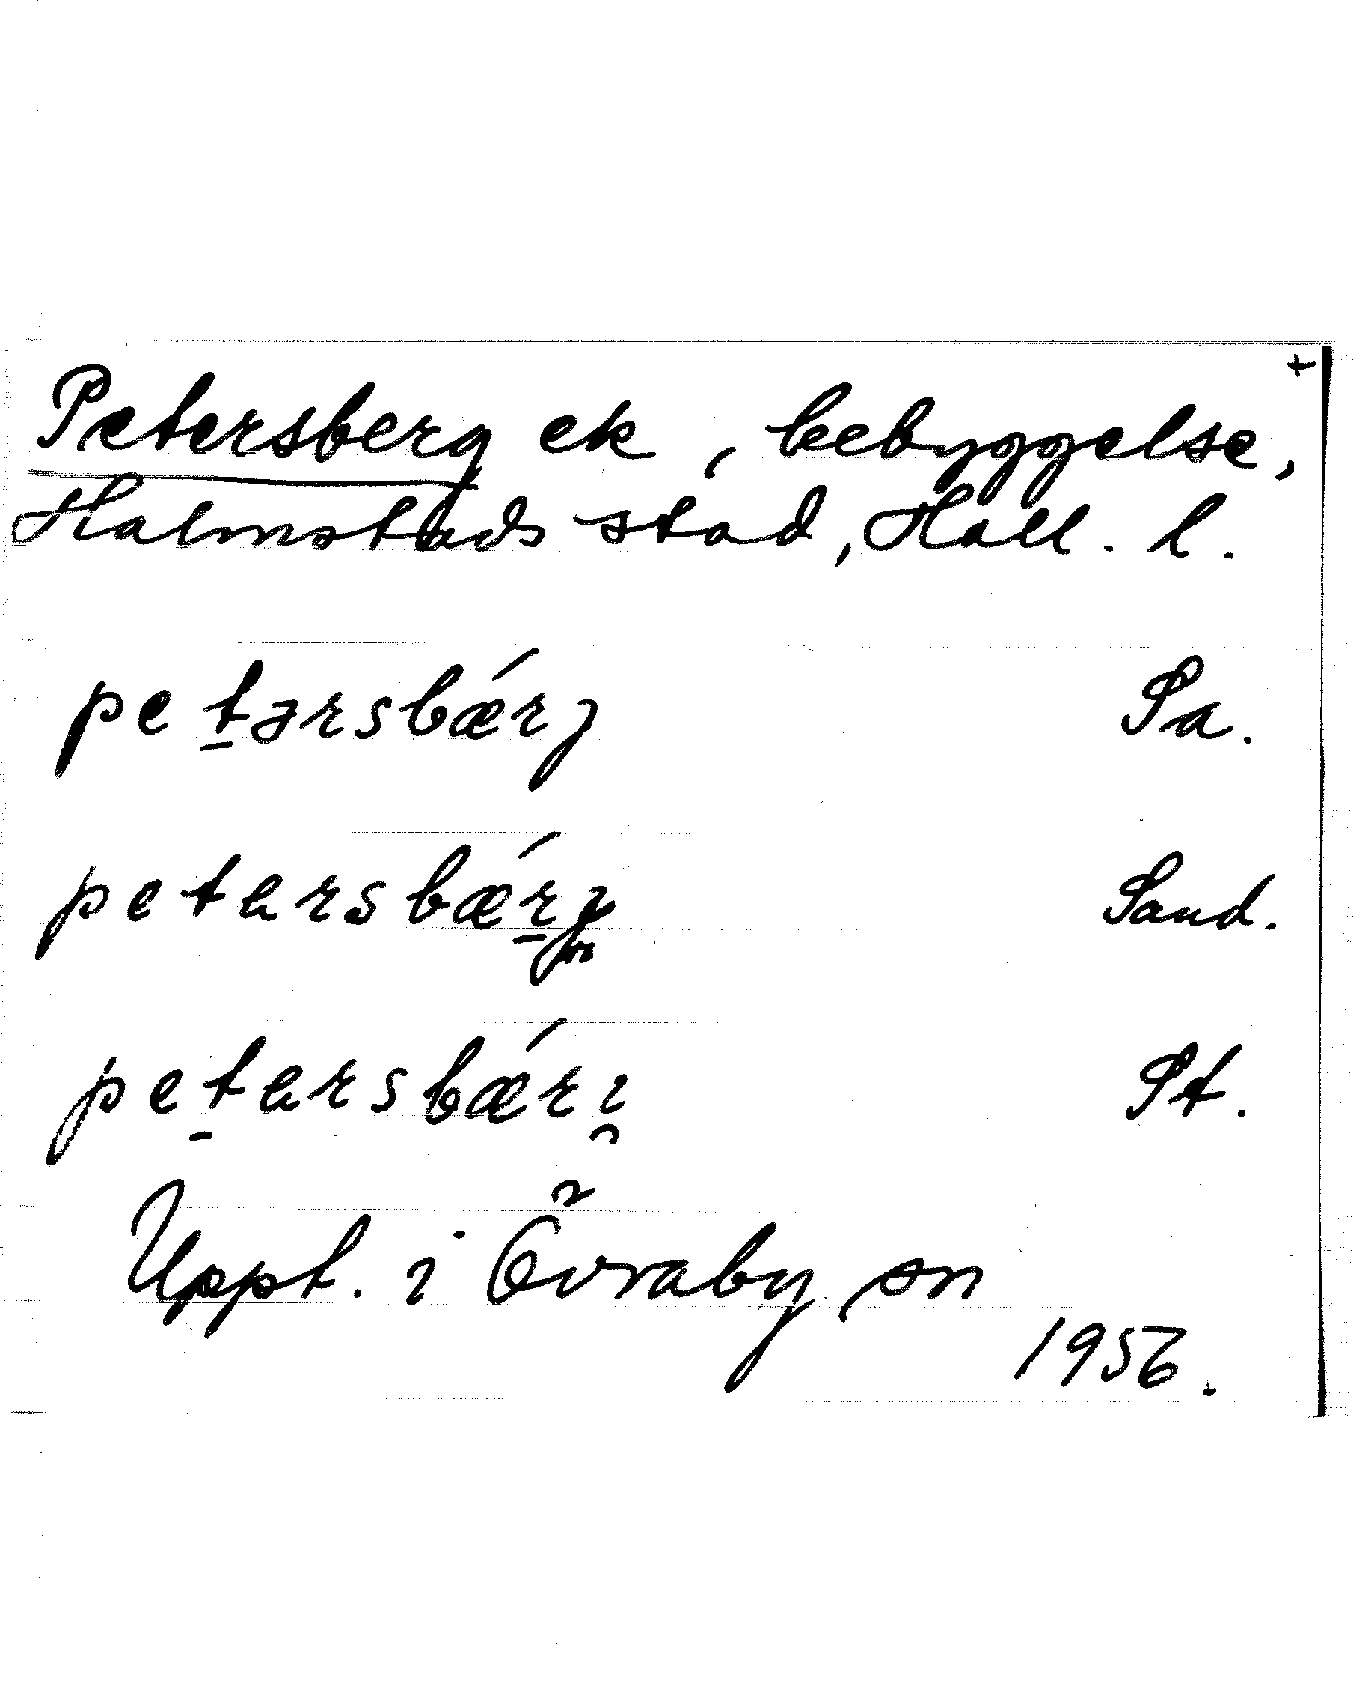 +
Petersberg ek, bebyggelse,
Halmstads stad, Hall. l.
pet̠ərsbǽrj Sa.
Sand.
St.
Uppt. i Övraby sn
1956.